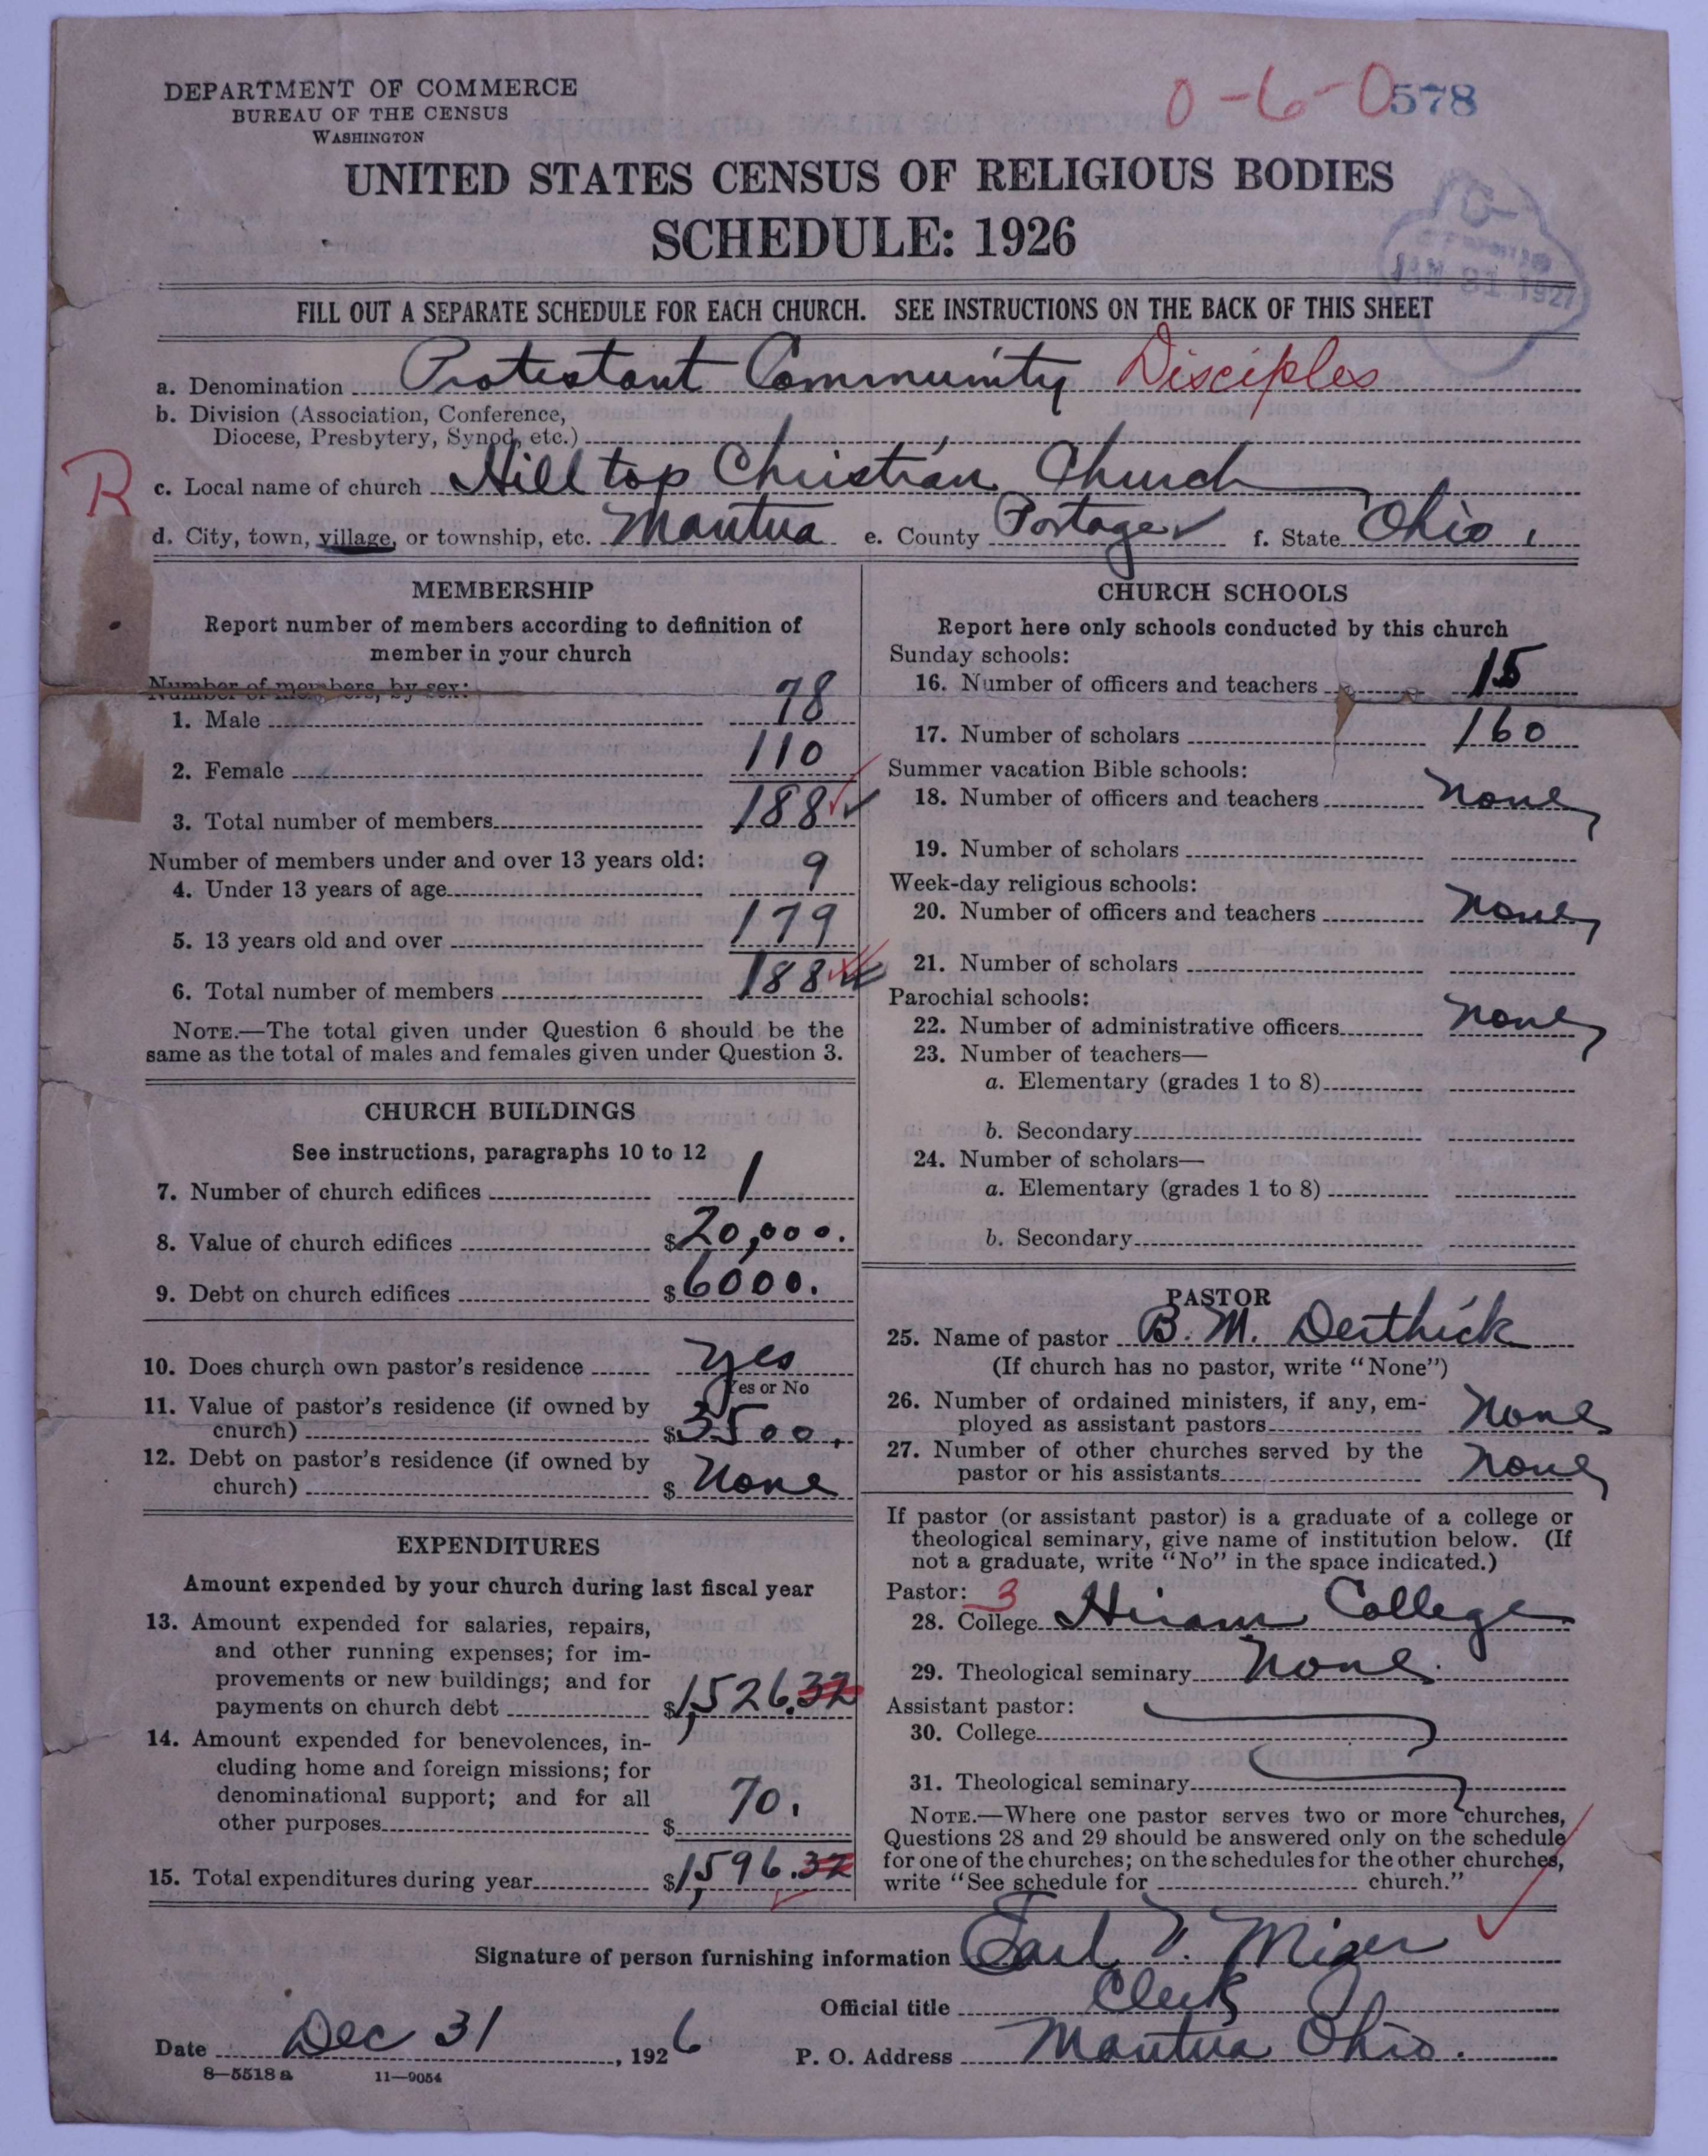 DEPARTMENT OF COMMERCE
BUREAU OF THE CENSUS
WASHINGTON
0-6-0 578
UNITED STATES CENSUS OF RELIGIOUS BODIES
SCHEDULE: 1926
JAN 31 1927
FILL OUT A SEPARATE SCHEDULE FOR EACH CHURCH. SEE INSTRUCTIONS ON THE BACK OF THIS SHEET
a. Denomination Protestant Community Disciples
b. Division (Association, Conference,
Diocese, Presbytery, Synod, etc.)
R
c. Local name of church Hill top Christian Church
d. City, town, village, or township, etc. Mantua e. County Portage f. State Ohio,
MEMBERSHIP
Report number of members according to definition of
member in your church
Number of members, by sex:
1. Male 78
2. Female 110
3. Total number of members 188
Number of members under and over 13 years old:
4. Under 13 years of age 9
5. 13 years old and over 179
6. Total number of members 188
NOTE.—The total given under Question 6 should be the
same as the total of males and females given under Question 3.
CHURCH BUILDINGS
See instructions, paragraphs 10 to 12
7. Number of church edifices 1
8. Value of church edifices $20,000.
9. Debt on church edifices $6000.
10. Does church own pastor's residence Yes
Yes or No
11. Value of pastor's residence (if owned by
church) $3500.
12. Debt on pastor's residence (if owned by
church) $ None
EXPENDITURES
Amount expended by your church during last fiscal year
13. Amount expended for salaries, repairs,
and other running expenses; for im-
provements or new buildings; and for
payments on church debt $1,526.32
14. Amount expended for benevolences, in-
cluding home and foreign missions; for
denominational support; and for all
other purposes $ 70.
15. Total expenditures during year $1,596.32
CHURCH SCHOOLS
Report here only schools conducted by this church
Sunday schools:
16. Number of officers and teachers 15
17. Number of scholars 160
Summer vacation Bible schools:
18. Number of officers and teachers None
19. Number of scholars
Week-day religious schools:
20. Number of officers and teachers None
21. Number of scholars
Parochial schools:
22. Number of administrative officers None
23. Number of teachers—
a. Elementary (grades 1 to 8)
b. Secondary
24. Number of scholars—
a. Elementary (grades 1 to 8)
b. Secondary
PASTOR
25. Name of pastor B. M. Derthick
(If church has no pastor, write "None")
26. Number of ordained ministers, if any, em-
ployed as assistant pastors None
27. Number of other churches served by the
pastor or his assistants None
If pastor (or assistant pastor) is a graduate of a college or
theological seminary, give name of institution below. (If
not a graduate, write "No" in the space indicated.)
Pastor: 3
28. College Hiram College
29. Theological seminary None.
Assistant pastor:
30. College
31. Theological seminary
NOTE.—Where one pastor serves two or more churches,
Questions 28 and 29 should be answered only on the schedule
for one of the churches; on the schedules for the other churches,
write "See schedule for church."
Signature of person furnishing information Earl V. Miser
Official title Clerk
Date Dec 31, 1926
P. O. Address Mantua Ohio.
8—5518 a 11—9054